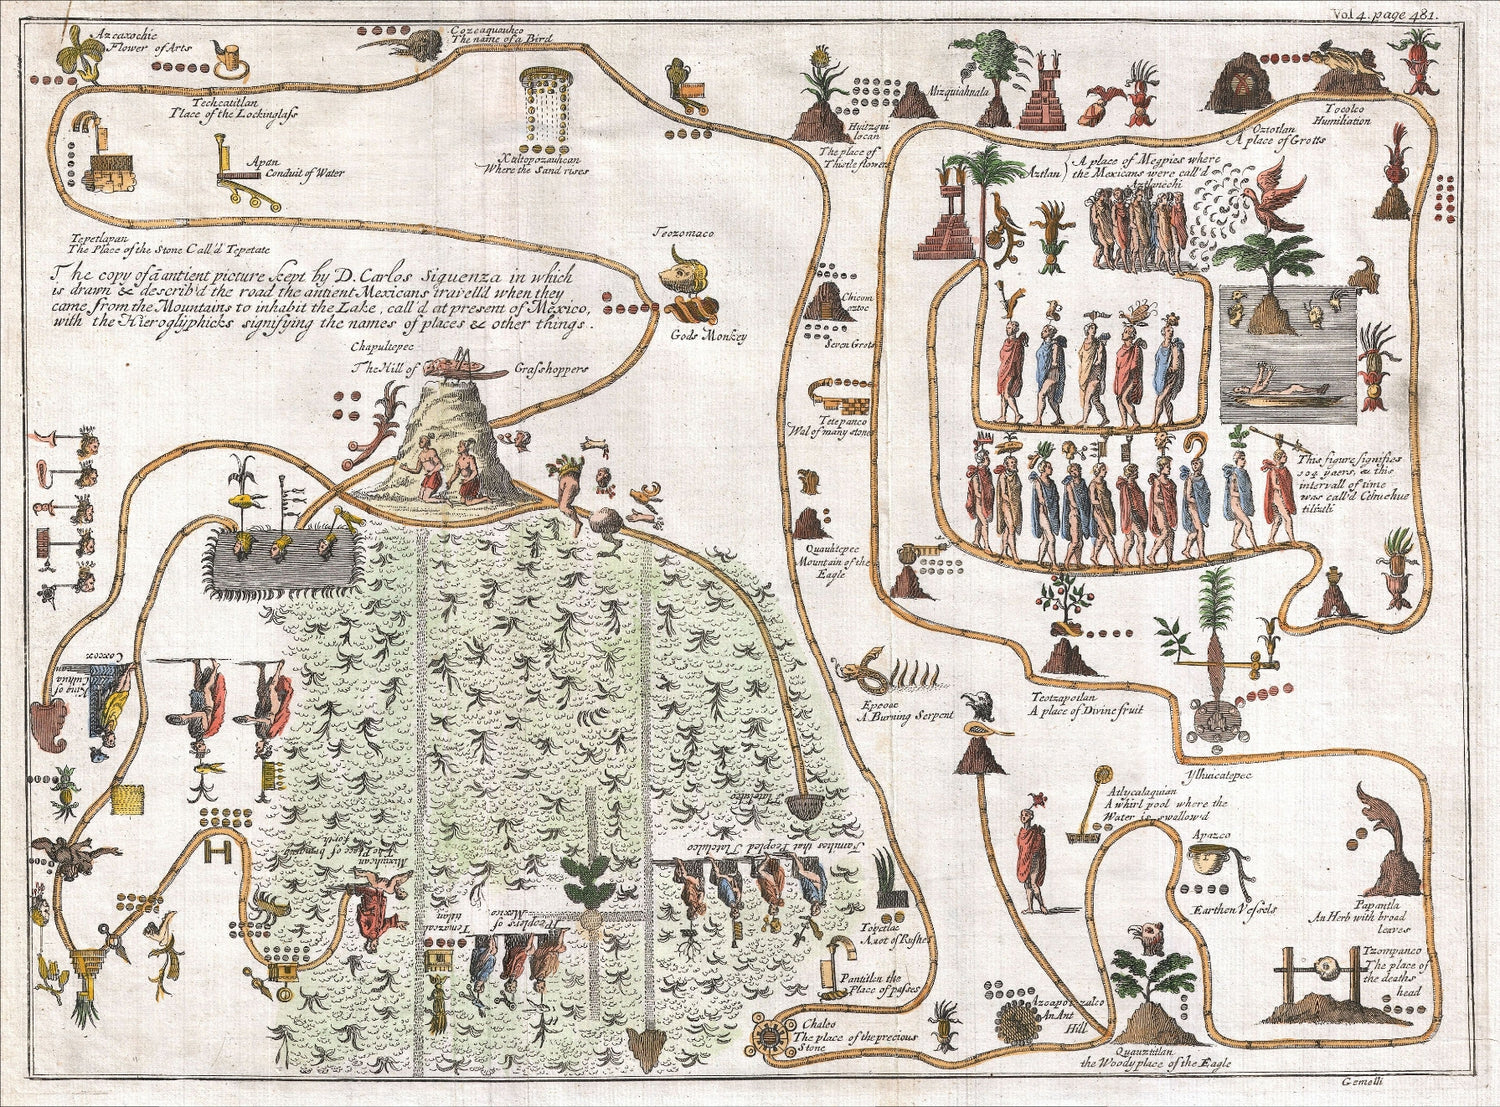 Vol 4. page 481.
Azcaxochic
Flower of Arts
Cozcaquauhco
The name of a Bird
Techcatitlan
Place of the Lockinglass
Apan
Conduit of Water
Xaltopozauhcan
Where the Sand rises
Huitzqui
locan
The place of
Thistle flowers
Mizquiahuala
Oztotlan
A place of Grotts
Tocolco
Humiliation
Aztlan
A place of Megpies where
the Mexicans were call'd
Aztlanechi
Tepetlapan
The Place of the Stone Call'd Tepetate
The copy of a antient picture kept by D. Carlos Siguenza in which
is drawn & describ'd the road the antient Mexicans travell'd when they
came from the Mountains to inhabit the Lake, call'd at present of Mexico,
with the Hieroglyphicks signifying the names of places & other things..
Teozomaco
Gods Monkey
Chicom
oztoc
Seven Grots
Chapultepec
The Hill of
Grasshoppers
Tetepanco
Wal of many stones
This figure signifies
104 yaers, & this
intervall of time
was call'd
Quauhtepec
Mountain of the
Eagle
Teotzapotlan
A place of Divine fruit
Epcoac
A Burning Serpent
Ylhuicatepec
Atlycalaquian
A whirl pool where the
Water is swallow'd
Apazco
Earthen Vessels
Papantla
An Herb with broad
leaves
Tzompanco
The place of
the deaths
head
Coxcox
King of
Culhua
can
Tlatelulco
Families that Peopled Tlatelulco
Mixiuhcan
The Place of bringing
forth
Peoplers of
Mexico
Tenuxcan
titlan
A root of Rushes
Pantitlan the
Place of passes
Chalco
The place of the precious
Stone
Azcapotzalco
An Ant
Hill
Quauztitlan
the Woody place of the Eagle
Gemelli